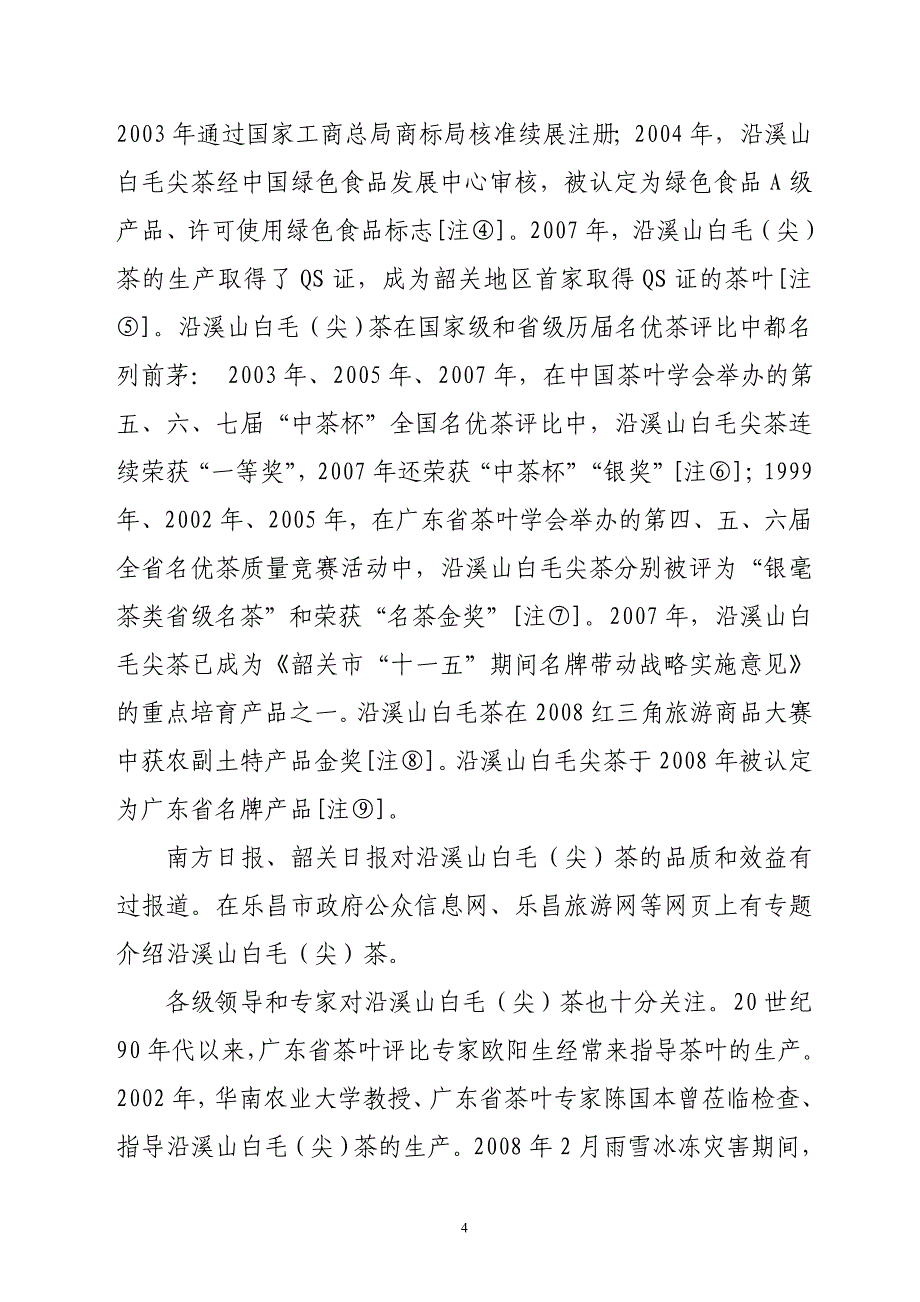 2003 年通过国家工商总局商标局核准续展注册；2004 年，沿溪山
白毛尖茶经中国绿色食品发展中心审核，被认定为绿色食品 A 级
产品、许可使用绿色食品标志[注④]。2007 年，沿溪山白毛（尖）
茶的生产取得了 QS 证，成为韶关地区首家取得 QS 证的茶叶[注
⑤]。沿溪山白毛（尖）茶在国家级和省级历届名优茶评比中都名
列前茅： 2003 年、2005 年、2007 年，在中国茶叶学会举办的第
五、六、七届“中茶杯”全国名优茶评比中，沿溪山白毛尖茶连
续荣获“一等奖”，2007 年还荣获“中茶杯”“银奖”[注⑥]；1999
年、2002 年、2005 年，在广东省茶叶学会举办的第四、五、六届
全省名优茶质量竞赛活动中，沿溪山白毛尖茶分别被评为“银毫
茶类省级名茶”和荣获“名茶金奖”[注⑦]。2007 年，沿溪山白
毛尖茶已成为《韶关市“十一五”期间名牌带动战略实施意见》
的重点培育产品之一。沿溪山白毛茶在 2008 红三角旅游商品大赛
中获农副土特产品金奖[注⑧]。沿溪山白毛尖茶于 2008 年被认定
为广东省名牌产品[注⑨]。
南方日报、韶关日报对沿溪山白毛（尖）茶的品质和效益有
过报道。在乐昌市政府公众信息网、乐昌旅游网等网页上有专题
介绍沿溪山白毛（尖）茶。
各级领导和专家对沿溪山白毛（尖）茶也十分关注。20 世纪
90 年代以来，广东省茶叶评比专家欧阳生经常来指导茶叶的生产。
2002 年，华南农业大学教授、广东省茶叶专家陈国本曾莅临检查、
指导沿溪山白毛（尖）茶的生产。2008 年 2 月雨雪冰冻灾害期间，
4